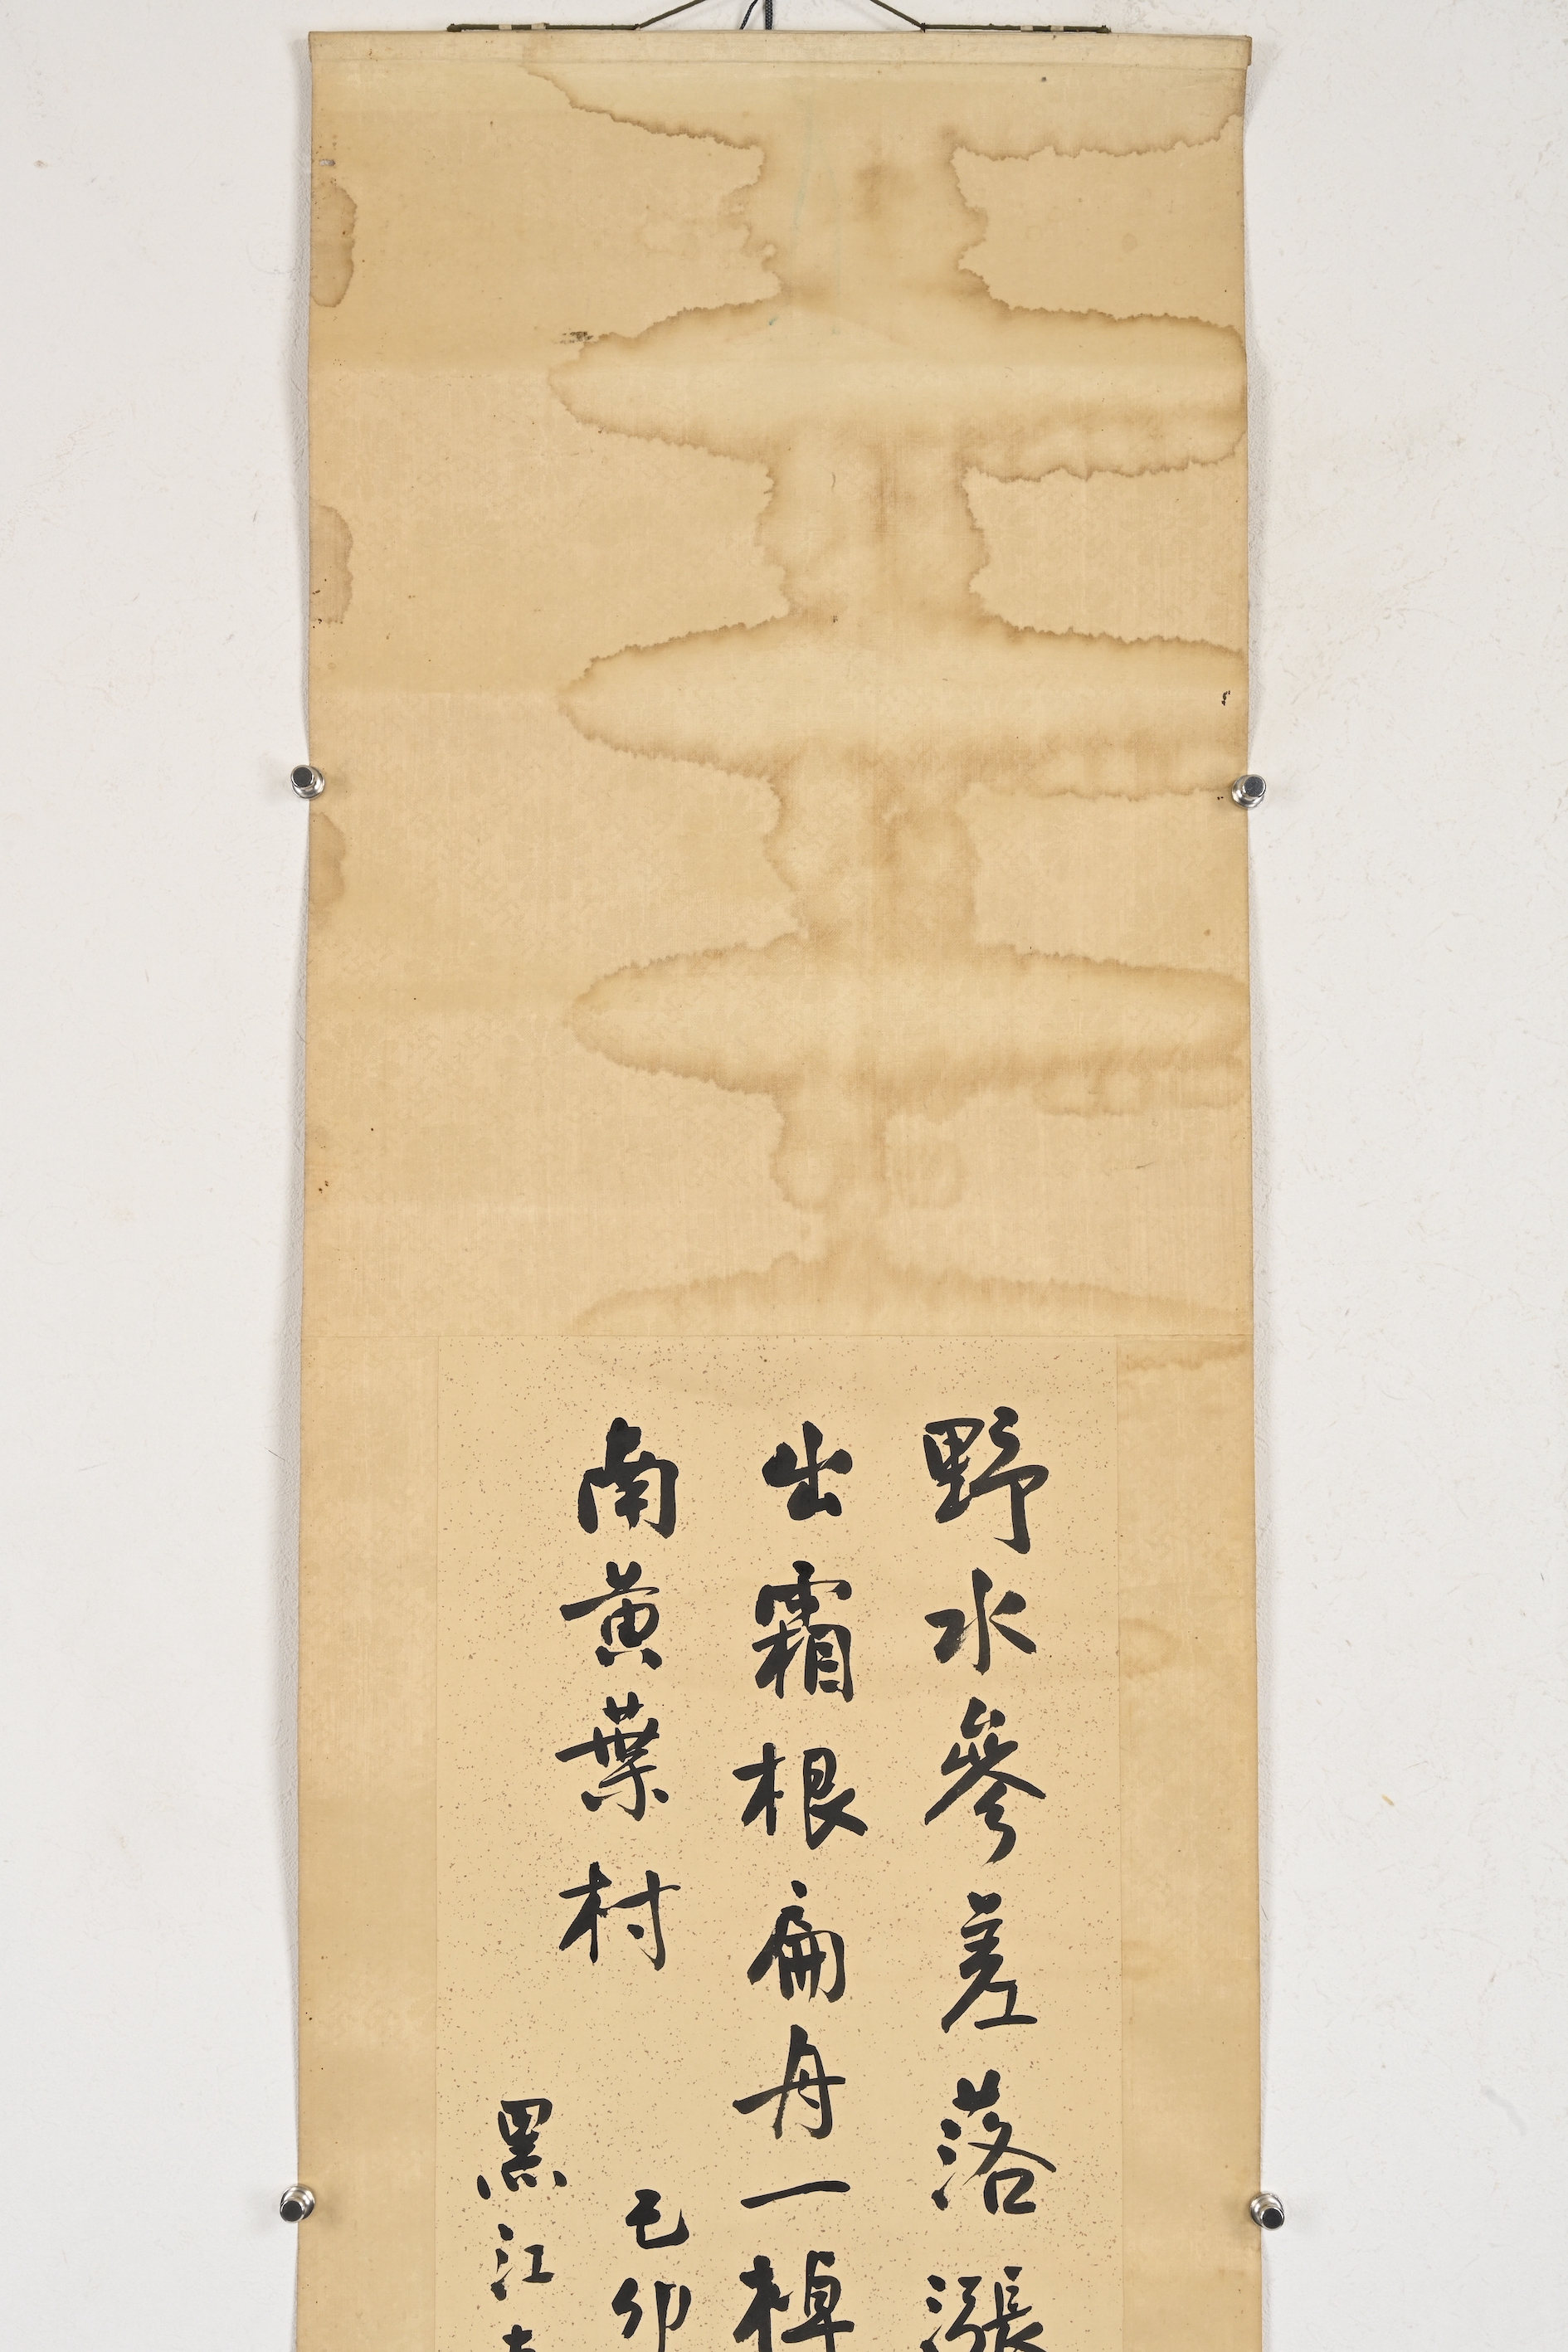 野水參差落漲
出霜根扁舟一棹
南黃葉村
己卯
黑江